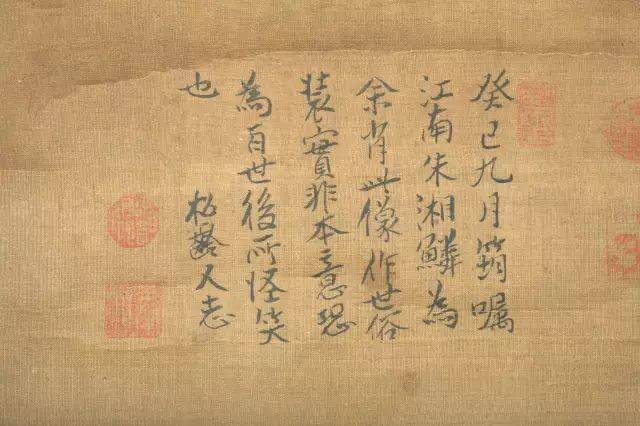 癸巳九月筠嘱
江南朱湘鳞為
余肖此像作世俗
装實非本意恐
為百世後所怪笑
也 松齡又志